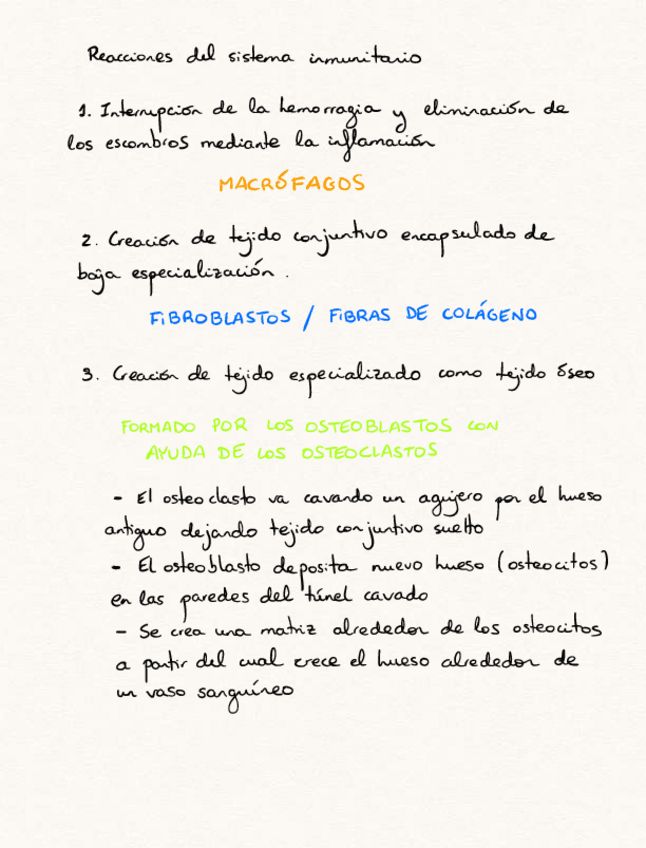 Reacciones del sistema inmunitario
1. Interrupción de la hemorragia y eliminación de
los escombros mediante la inflamación
MACRÓFAGOS
2. Creación de tejido conjuntivo encapsulado de
baja especialización.
FIBROBLASTOS / FIBRAS DE COLÁGENO
3. Creación de tejido especializado como tejido óseo
FORMADO POR LOS OSTEOBLASTOS CON
AYUDA DE LOS OSTEOCLASTOS
- El osteoclasto va cavando un agujero por el hueso
antiguo dejando tejido conjuntivo suelto
- El osteoblasto deposita nuevo hueso (osteocitos)
en las paredes del túnel cavado
- Se crea una matriz alrededor de los osteocitos
a partir del cual crece el hueso alrededor de
un vaso sanguíneo